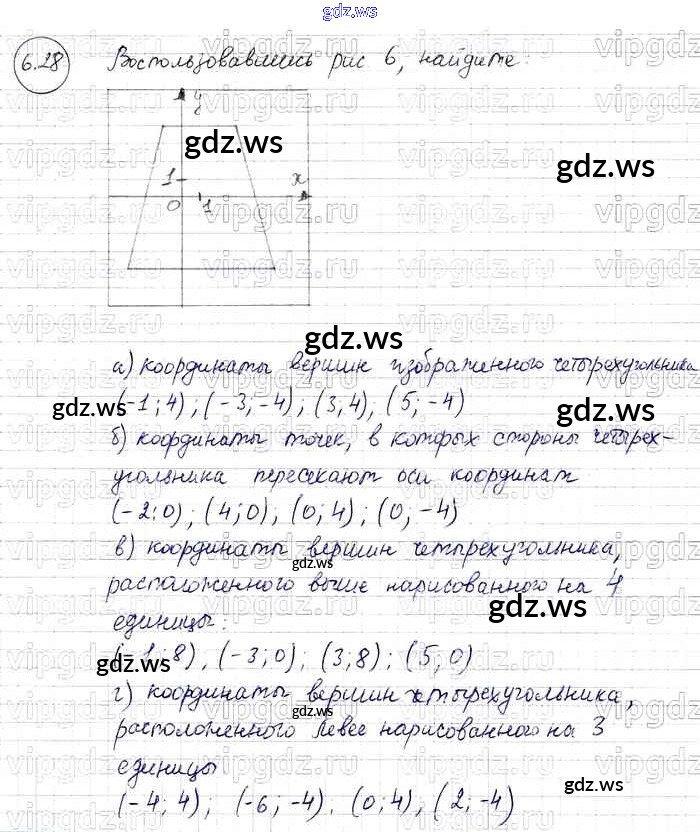 gdz.ws
6.28 Воспользовавшись рис 6, найдите:
y
gdz.ws
gdz.ws
1 x
0 1
gdz.ws
а) координаты вершин изображенного четырехугольника
(-1; 4), (-3; -4); (3; 4), (5; -4)
gdz.ws gdz.ws
б) координаты точек, в которых стороны четырех-
угольника пересекают оси координат
(-2; 0); (4; 0), (0; 4); (0; -4)
в) координаты вершин четырехугольника,
gdz.ws
расположенного выше нарисованного на 4
gdz.ws
единицы:
(-1; 8), (-3; 0); (3; 8); (5; 0)
gdz.ws
г) координаты вершин четырехугольника,
gdz.ws
расположенного левее нарисованного на 3
единицы
gdz.ws
(-4; 4); (-6; -4), (0; 4), (2; -4)
gdz.ws